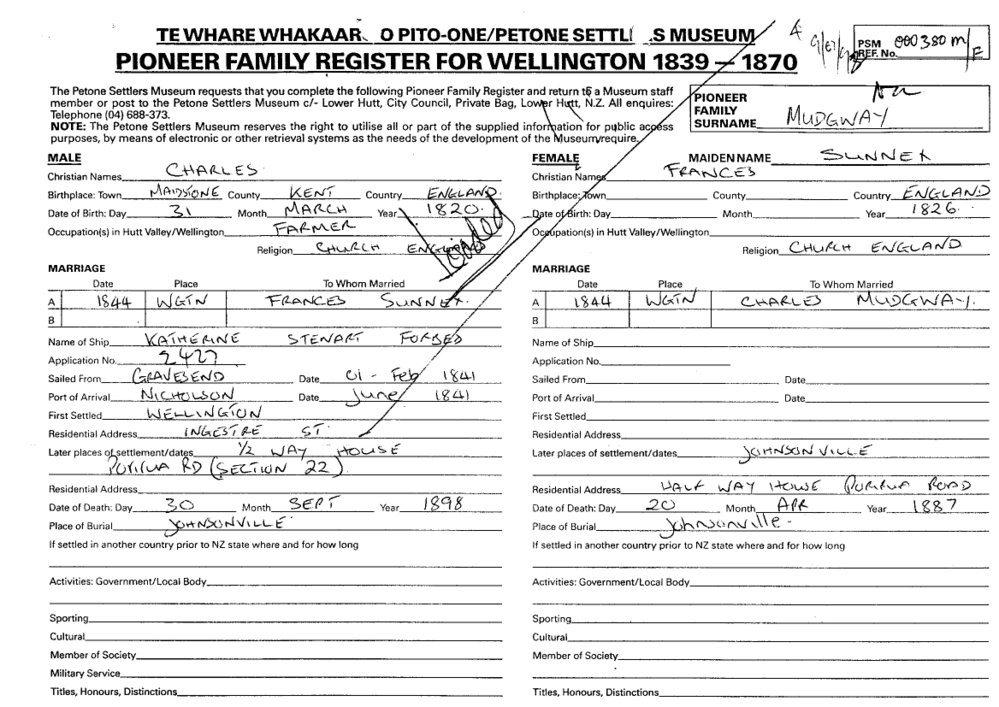 TE WHARE WHAKAAR O PITO-ONE/PETONE SETTL .S MUSEUM
PIONEER FAMILY REGISTER FOR WELLINGTON 1839 – 1870
PSM 000380 M
REF. No. F
The Petone Settlers Museum requests that you complete the following Pioneer Family Register and return to a Museum staff
member or post to the Petone Settlers Museum c/- Lower Hutt, City Council, Private Bag, Lower Hutt, N.Z. All enquires:
Telephone (04) 688-373.
NOTE: The Petone Settlers Museum reserves the right to utilise all or part of the supplied information for public access
purposes, by means of electronic or other retrieval systems as the needs of the development of the Museum require.
PIONEER
FAMILY
SURNAME MUDGWAY
MALE
Christian Names CHARLES
Birthplace: Town MAIDSTONE County KENT Country ENGLAND
Date of Birth: Day 31 Month MARCH Year 1820
Occupation(s) in Hutt Valley/Wellington FARMER
Religion CHURCH ENGLAND
MARRIAGE
Date Place To Whom Married
A 1844 WGTN FRANCES SUNNEX
B
Name of Ship KATHERINE STEWART FORBES
Application No. 2427
Sailed From GRAVESEND Date 01 - Feb 1841
Port of Arrival NICHOLSON Date June 1841
First Settled WELLINGTON
Residential Address INGESTRE ST.
Later places of settlement/dates 1/2 WAY HOUSE
PORIRUA RD (SECTION 22)
Residential Address
Date of Death: Day 30 Month SEPT Year 1898
Place of Burial JOHNSONVILLE
If settled in another country prior to NZ state where and for how long
Activities: Government/Local Body
Sporting
Cultural
Member of Society
Military Service
Titles, Honours, Distinctions
FEMALE MAIDEN NAME SUNNEX
Christian Names FRANCES
Birthplace: Town County Country ENGLAND
Date of Birth: Day Month Year 1826
Occupation(s) in Hutt Valley/Wellington
Religion CHURCH ENGLAND
MARRIAGE
Date Place To Whom Married
A 1844 WGTN CHARLES MUDGWAY.
B
Name of Ship
Application No.
Sailed From Date
Port of Arrival Date
First Settled
Residential Address
Later places of settlement/dates JOHNSONVILLE
Residential Address HALF WAY HOUSE PORIRUA ROAD
Date of Death: Day 20 Month APR Year 1887
Place of Burial Johnsonville -
If settled in another country prior to NZ state where and for how long
Activities: Government/Local Body
Sporting
Cultural
Member of Society
Titles, Honours, Distinctions